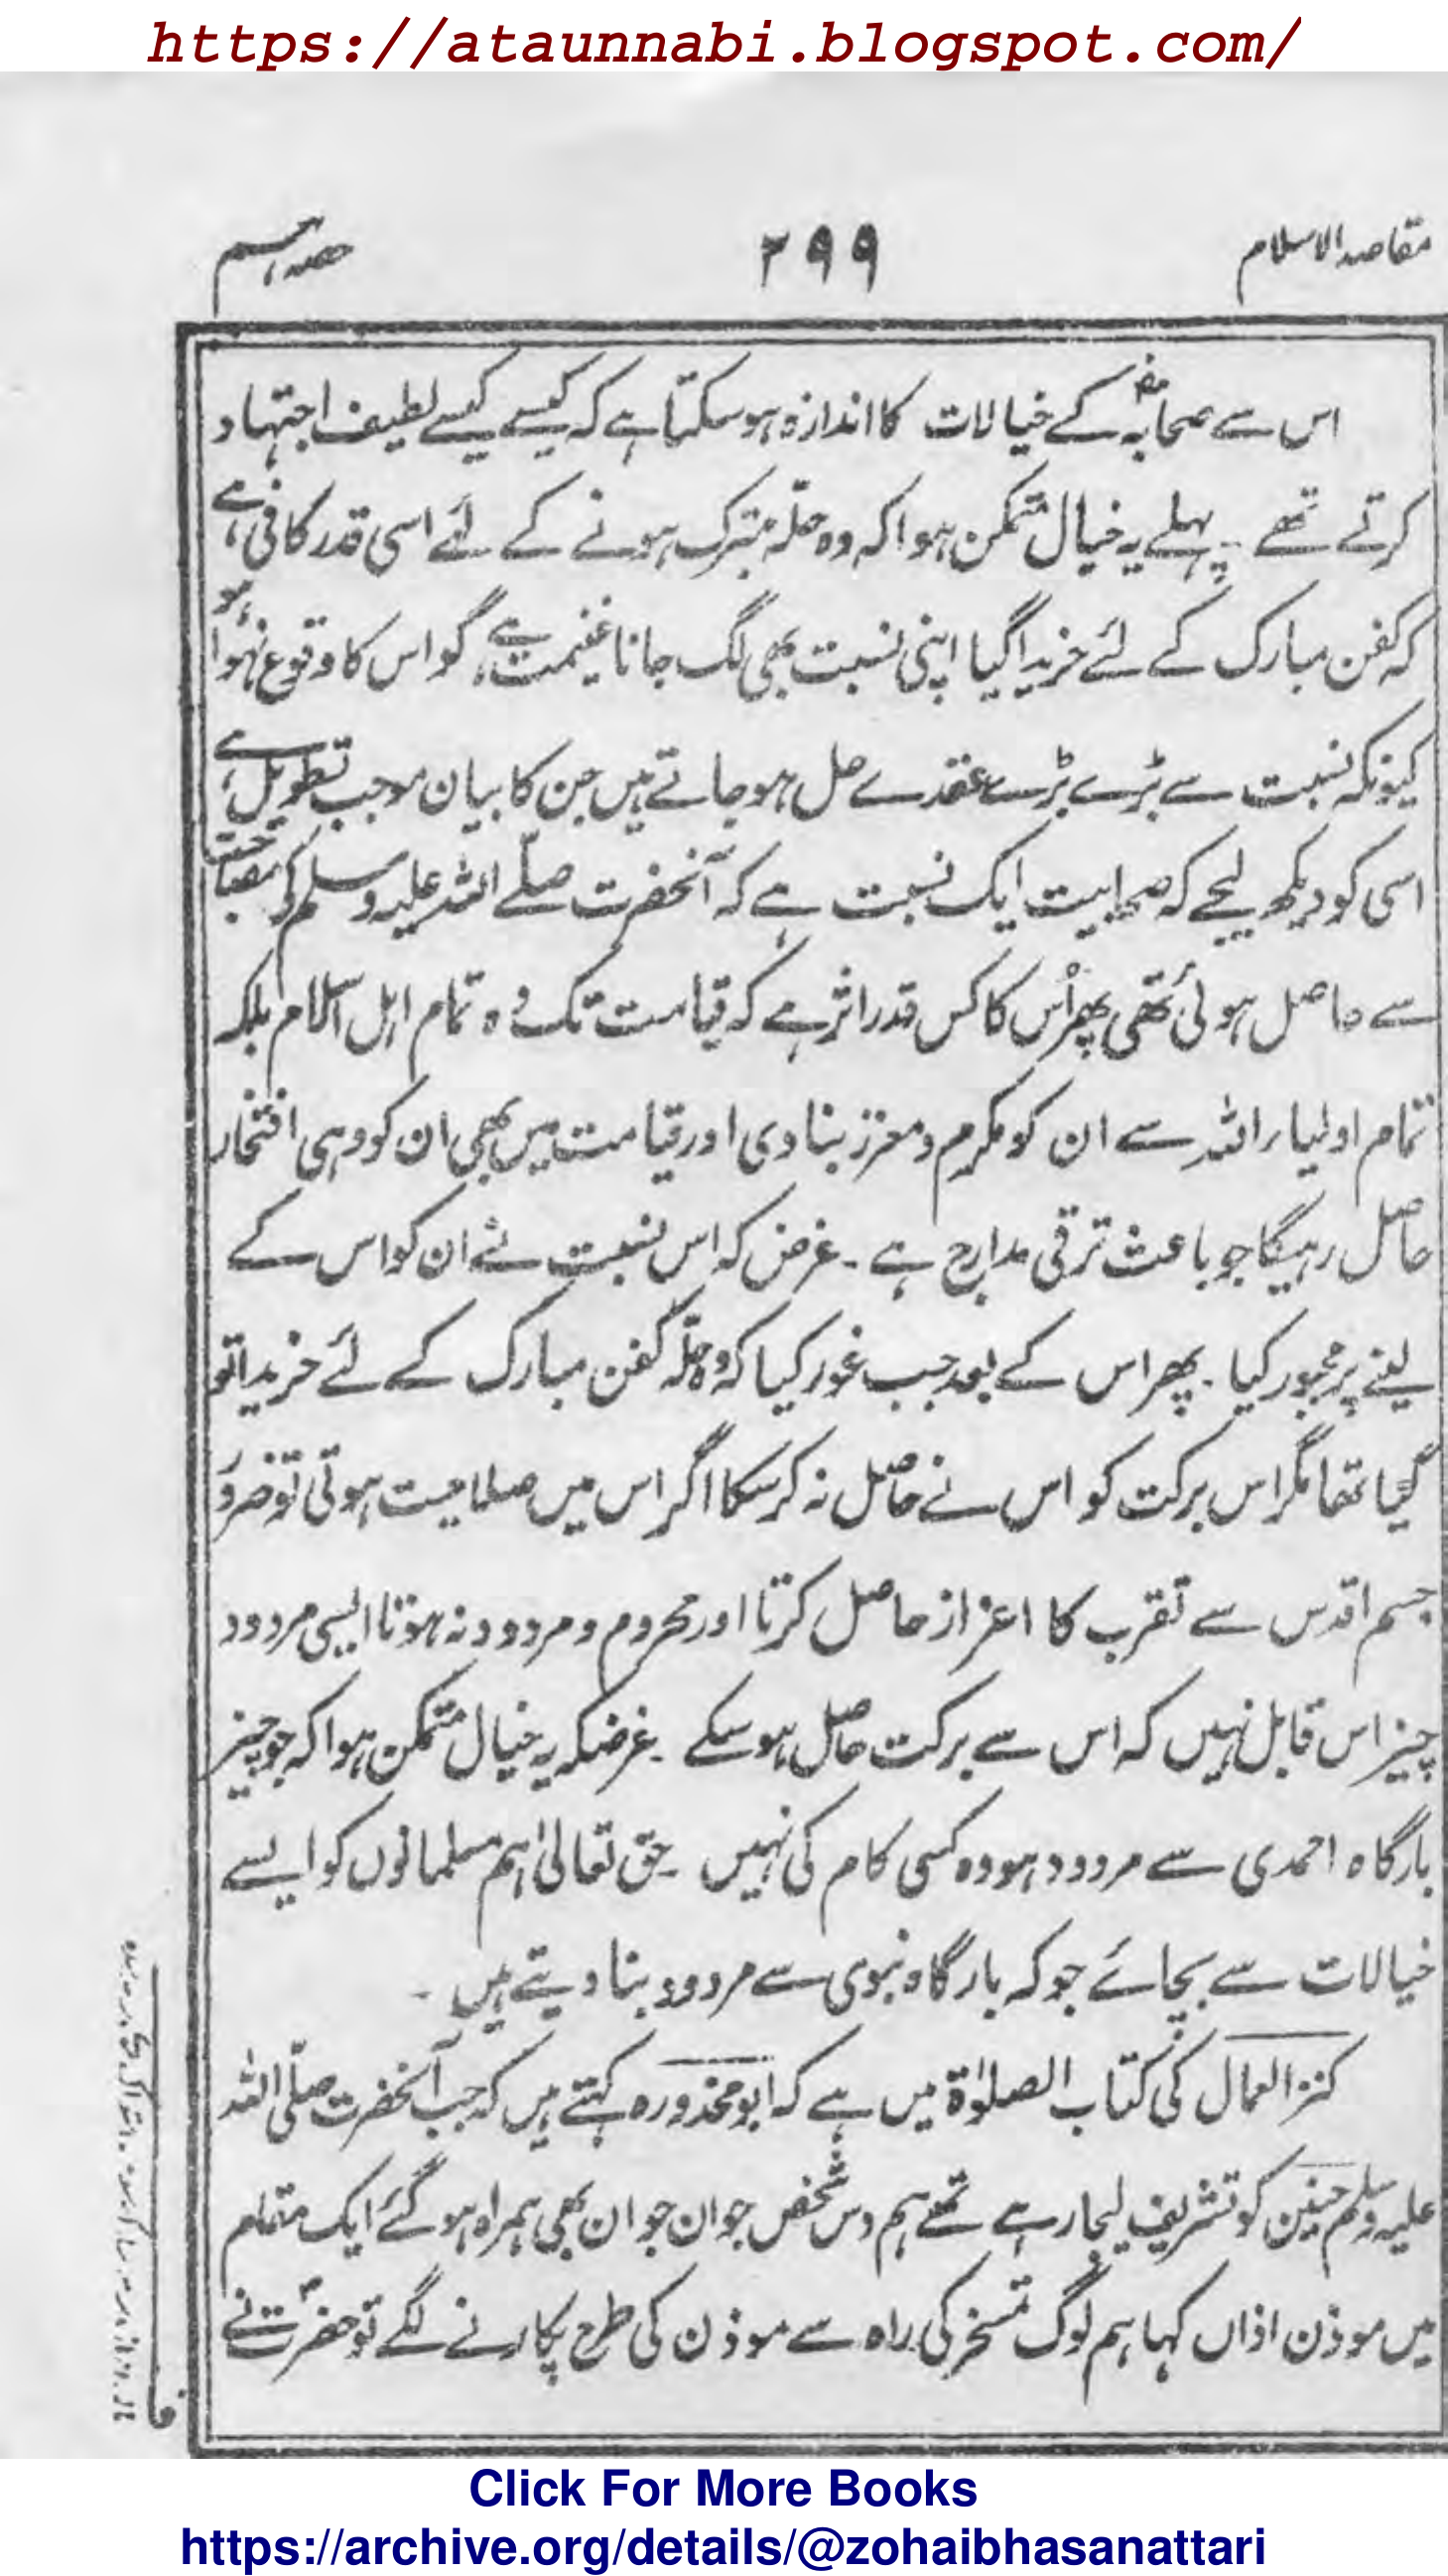 https://ataunnabi.blogspot.com/
مقاصد الاسلام
۲۹۹
حصہ
اس سے صحابہؓ کے خیالات کا اندازہ ہوسکتا ہے کہ کیسے کیسے لطیف اجتہاد
کرتے تھے ۔ پہلے یہ خیال متمکن ہوا کہ وہ حلّہ متبرک ہونے کے لئے اسی قدر کافی ہے
کہ کفن مبارک کے لئے خریدا گیا اپنی نسبت بھی لگ جانا غنیمت ہے، گو اس کا وقوع نہوا ہو
کیونکہ نسبت سے بڑے بڑے عقدے حل ہوجاتے ہیں جن کا بیان موجب تطویل ہے،
اسی کو دیکھ لیجے کہ صحابیت ایک نسبت ہے کہ آنحضرت صلے اللہ علیہ وسلم کی مصاحبت
سے حاصل ہوئی تھی پھر اُس کا کس قدر اثر ہے کہ قیامت تک وہ تمام اہل اسلام بلکہ
تمام اولیاء اللہ سے ان کو مکرم و معزز بنا دی اور قیامت میں بھی ان کو وہی افتخار
حاصل رہیگا جو باعث ترقی مدارج ہے ۔ غرض کہ اس نسبت نے ان کو اس کے
لینے پر مجبور کیا ۔ پھر اس کے بعد جب غور کیا کہ وہ حلّہ کفن مبارک کے لئے خریدا تو
گیا تھا مگر اس برکت کو اس نے حاصل نہ کرسکا اگر اس میں صلاحیت ہوتی تو ضرور
جسم اقدس سے تقرب کا اعزاز حاصل کرتا اور محروم و مردود نہ ہوتا ایسی مردود
چیز اس قابل نہیں کہ اس سے برکت حاصل ہوسکے ۔ غرضکہ یہ خیال متمکن ہوا کہ جو چیز
بارگاہ احمدی سے مردود ہو وہ کسی کام کی نہیں ۔ حق تعالیٰ ہم مسلمانوں کو ایسے
خیالات سے بچائے جو کہ بارگاہ نبوی سے مردود بنا دیتے ہیں ۔
کنز العمال کی کتاب الصلوٰۃ میں ہے کہ ابو محذورہ کہتے ہیں کہ جب آنحضرت صلّی اللہ
علیہ وسلم حنین کو تشریف لیجا رہے تھے ہم دس شخص جوان جوان بھی ہمراہ ہو گئے ایک مقام
میں موذن اذاں کہا ہم لوگ تمسخر کی راہ سے موذن کی طرح پکارنے لگے تو حضرتؐ نے
Click For More Books
https://archive.org/details/@zohaibhasanattari